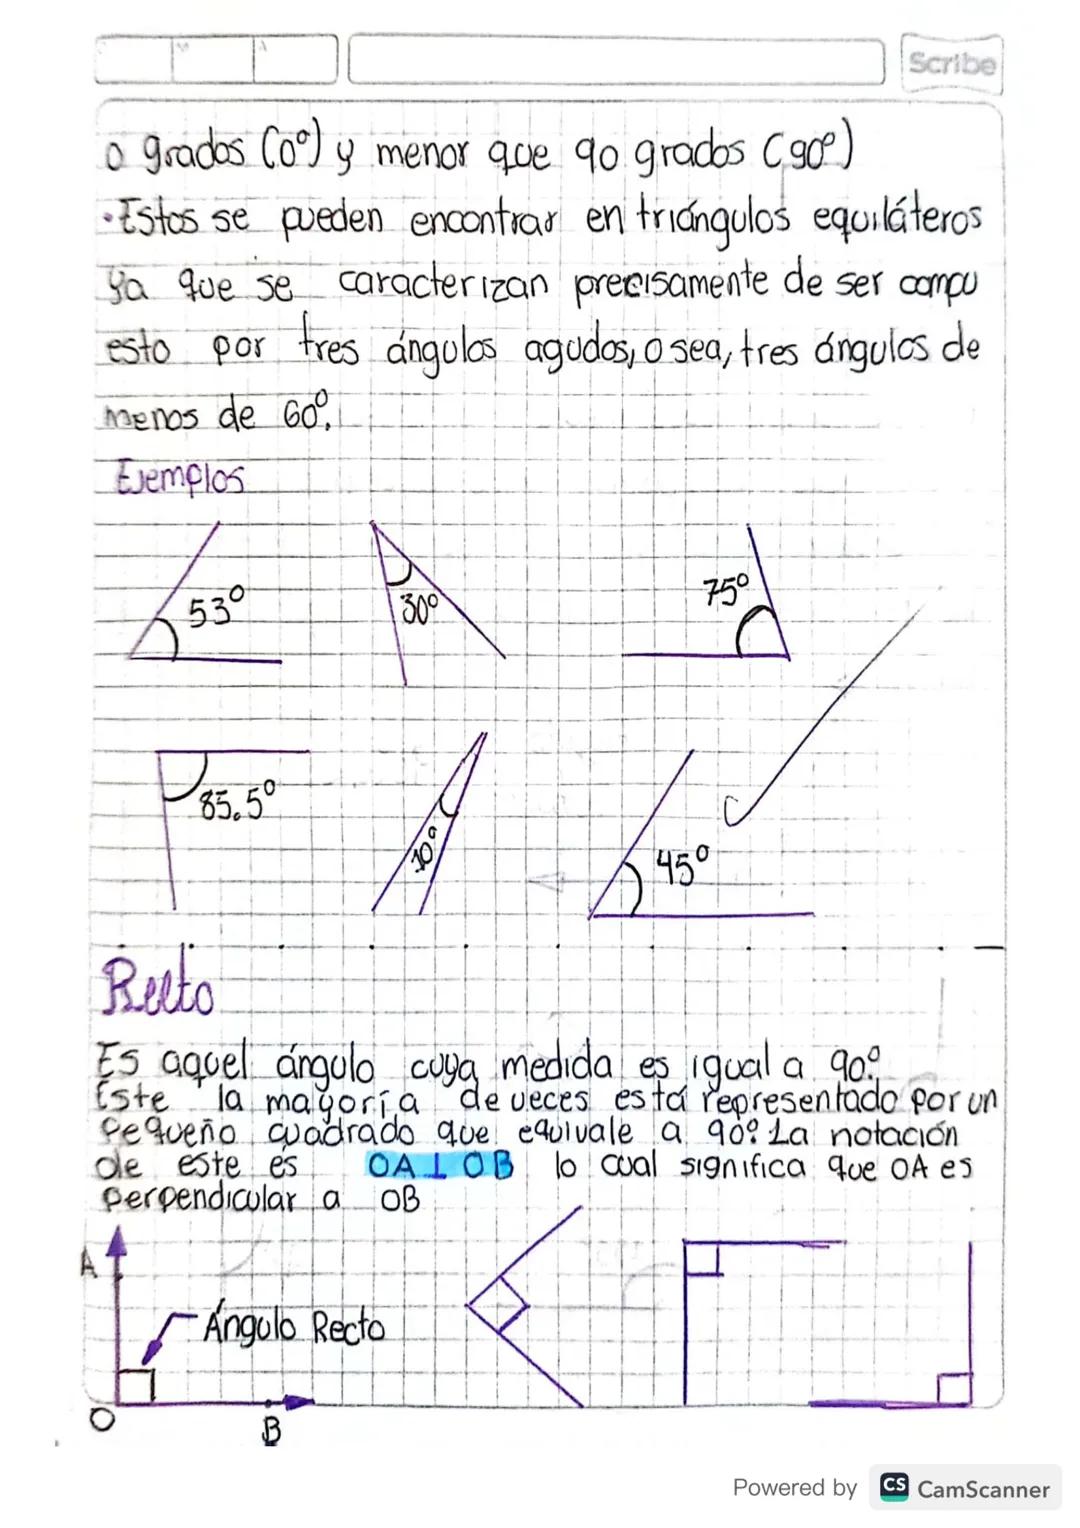 Scribe
0 grados (0°) y menor que 90 grados (90°)
• Estos se pueden encontrar en triángulos equiláteros
ya que se caracterizan precisamente de ser compu
esto por tres ángulos agudos, o sea, tres ángulos de
menos de 60°.
Ejemplos
53°
30°
75°
85.5°
10°
45°
Recto
Es aquel ángulo cuya medida es igual a 90°.
Este la mayoría de veces está representado por un
pequeño cuadrado que equivale a 90°. La notación
de este es OA ⊥ OB lo cual significa que OA es
perpendicular a OB
A
Ángulo Recto
O
B
Powered by CS CamScanner